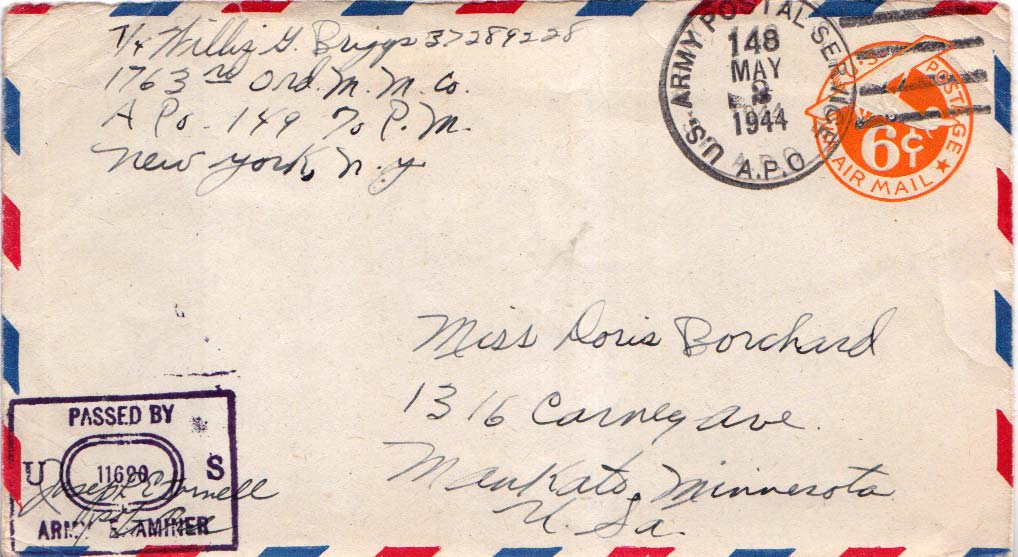 T/4 Willis G. Briggs 37289228
1763 rd Ord. M. M. Co.
A Po. 149 % P. M.
New York, N. Y
U.S. ARMY POSTAL SERVICE
148
MAY
1944
A.P.O
U.S. POSTAGE
6¢
AIR MAIL
Miss Doris Borchard
1316 Carney Ave.
Mankato, Minnesota
U. Sa.
PASSED BY
U 11620 S
Joseph
ARMY EXAMINER